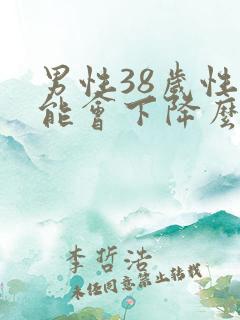 男性38歲性
能會下降麼
李哲浩
未经同意禁止转载